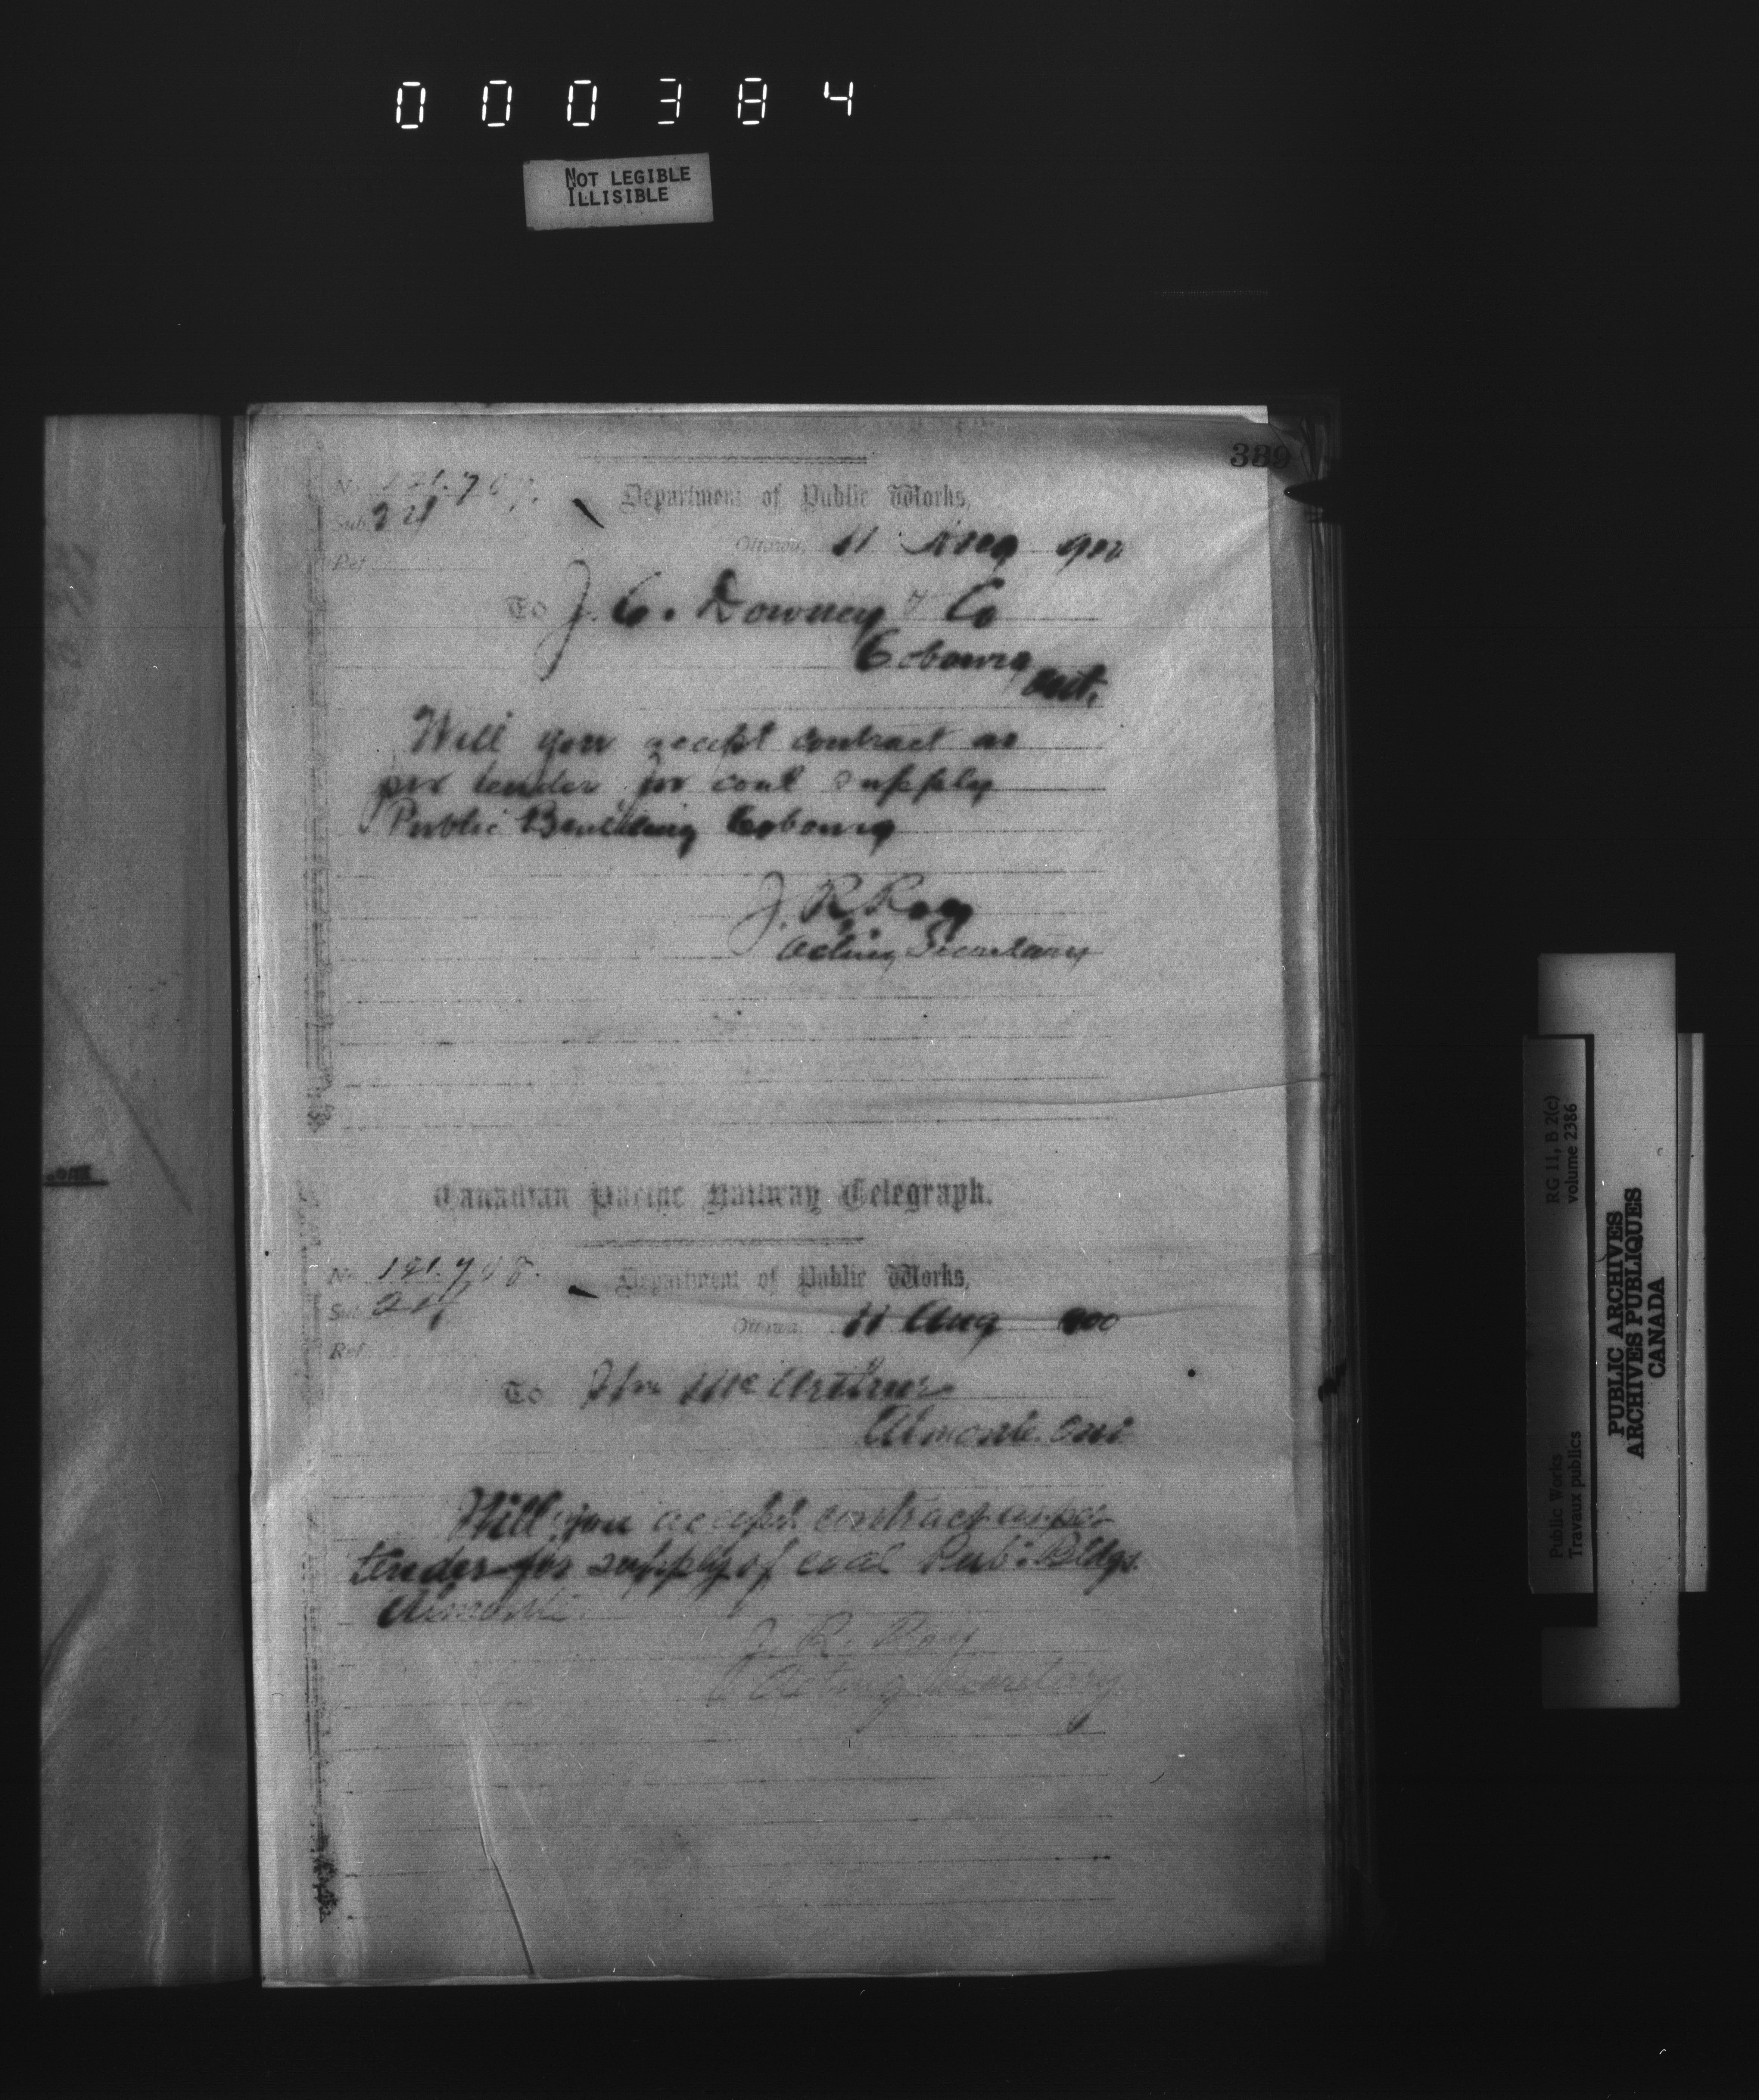 000384
NOT LEGIBLE
ILLISIBLE
389
No. 121.707.
Sub 221
Department of Public Works,
Ottawa, 11 Aug 900
Ref
To J. C. Downey & Co
Cobourg
Ont.
Will you accept contract as
per tender for coal supply
Public Building Cobourg
J. R. Roy
Acting Secretary
Canadian Pacific Railway Telegraph.
No. 121.708.
Department of Public Works,
Sub
Ottawa, 11 Aug 900
Ref.
To McArthur
Almonte. Ont
Will you accept contract as per
tender for supply of coal Pub: Bldgs.
Almonte.
J. R. Roy
Acting Secretary
RG 11, B 2(c)
volume 2386
Public Works
Travaux publics
PUBLIC ARCHIVES
ARCHIVES PUBLIQUES
CANADA